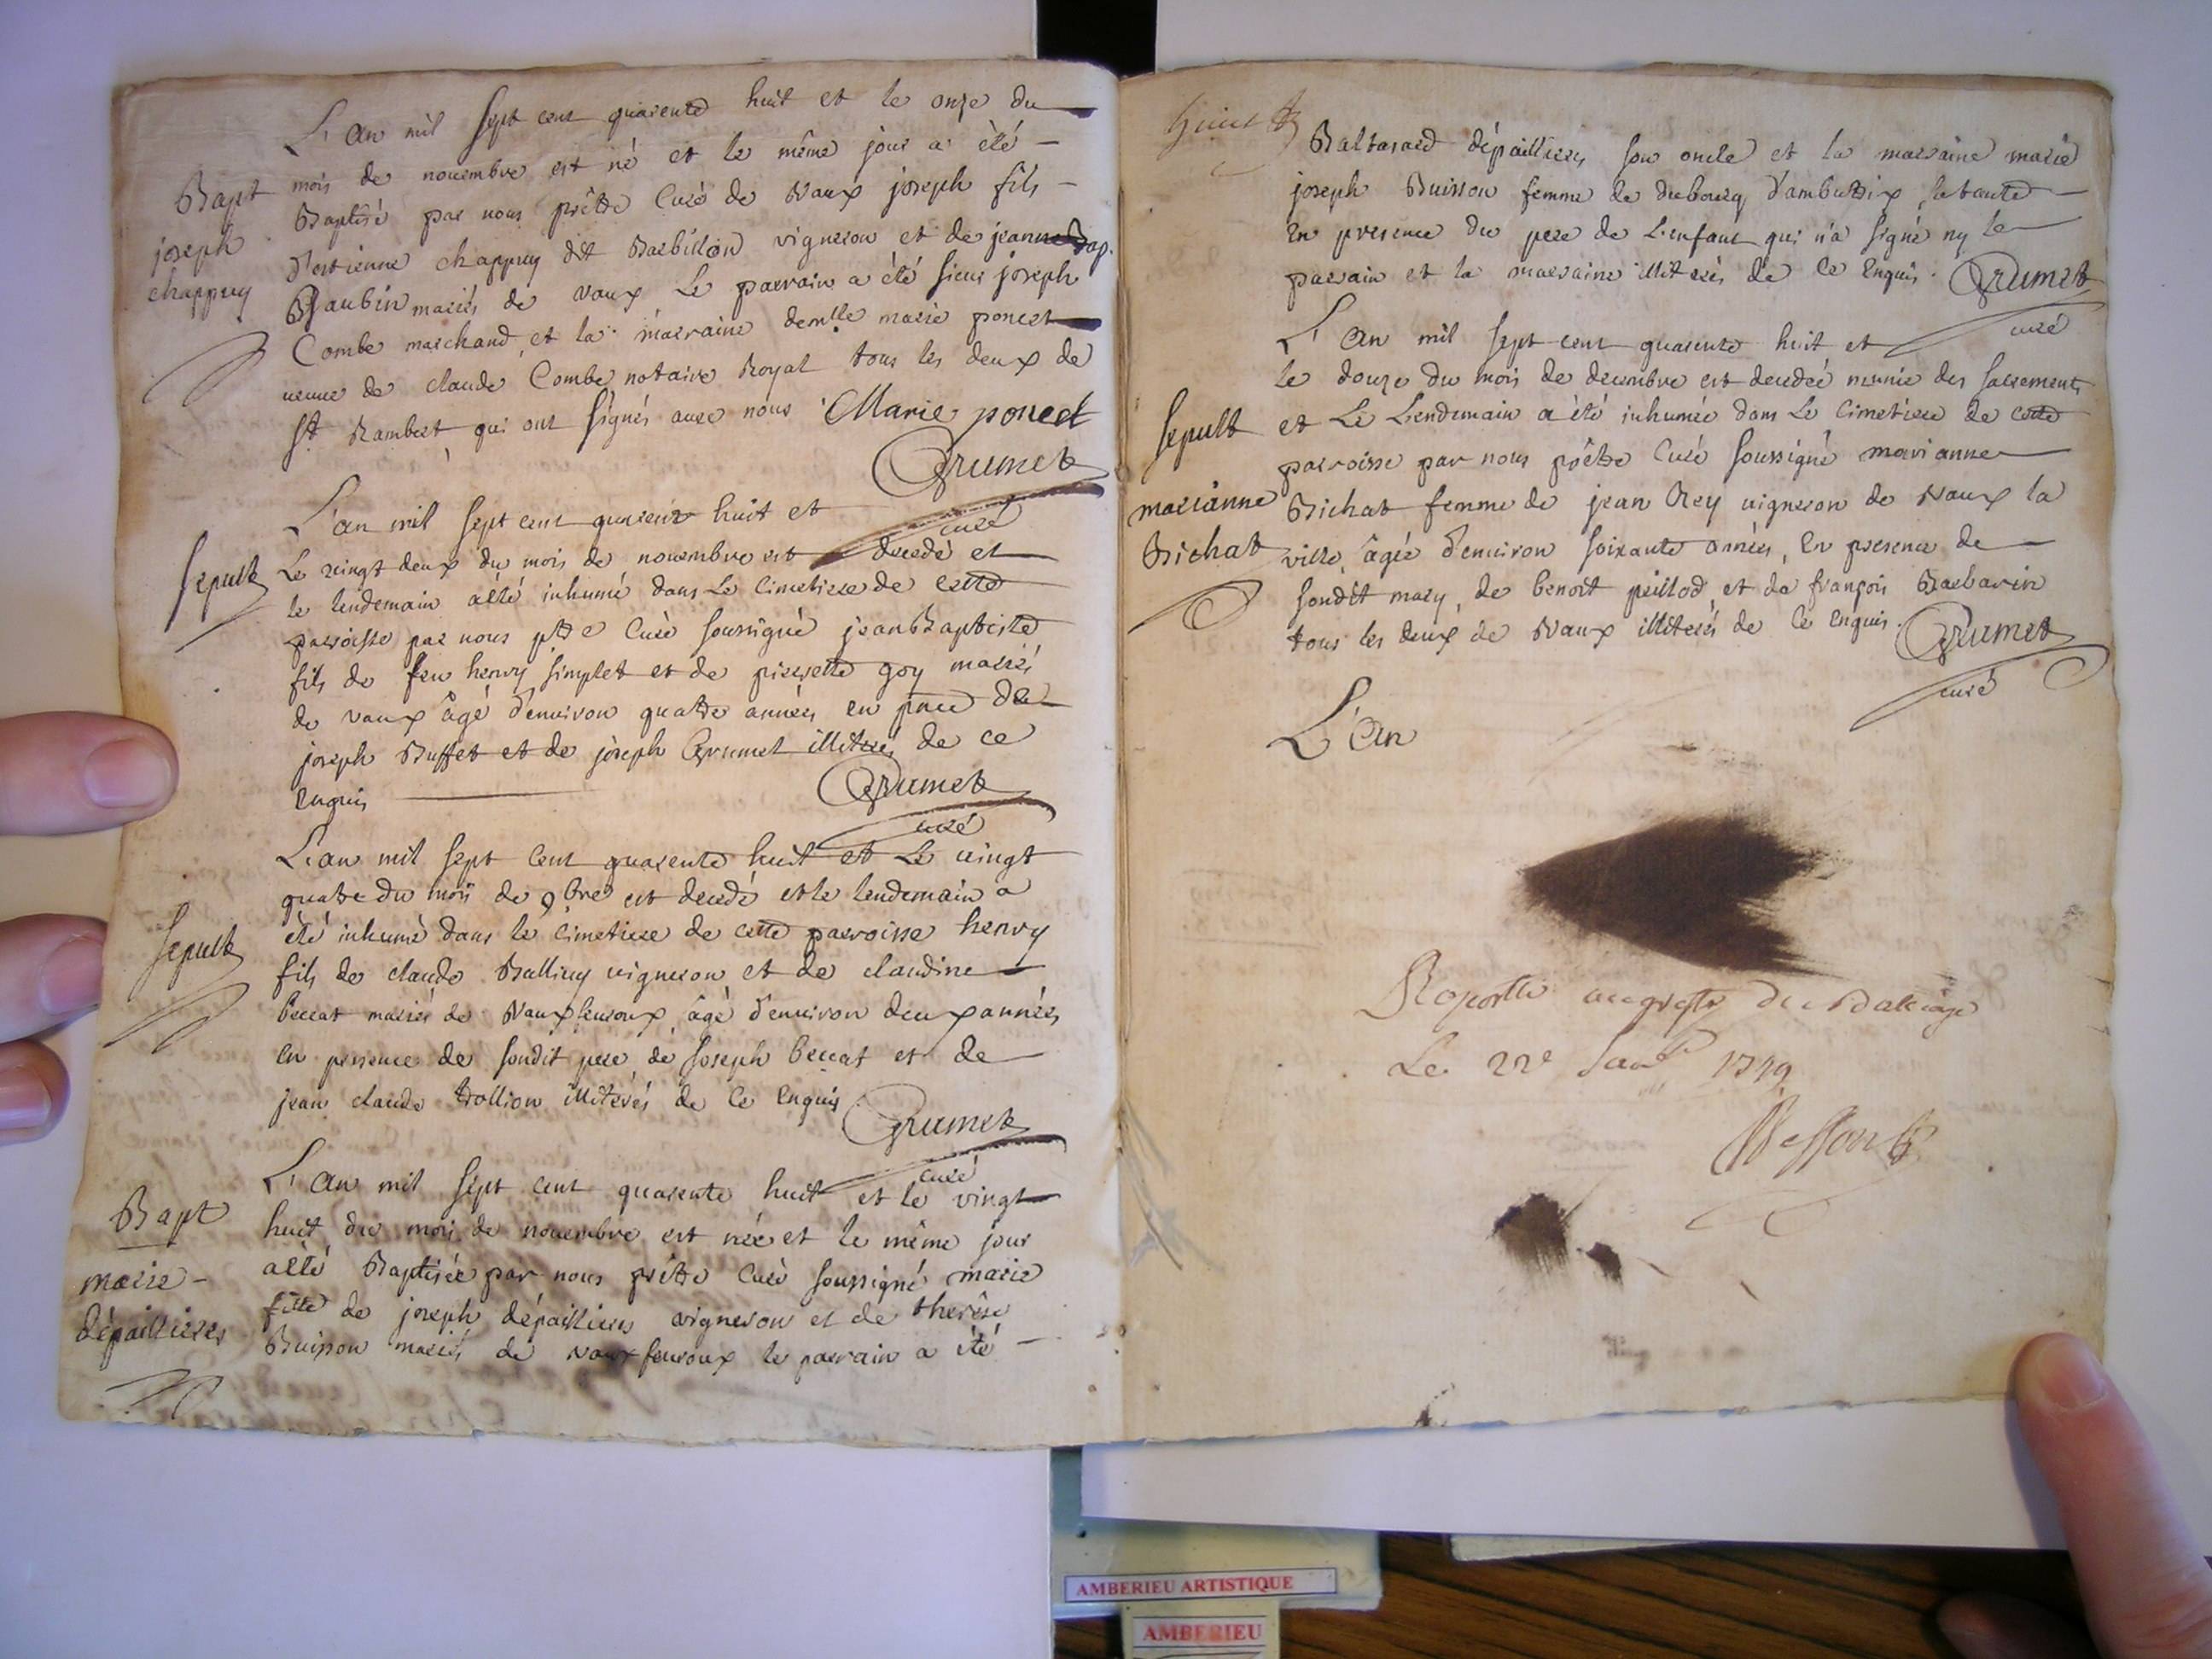 L'an mil sept cent quarente huit et le onze du
mois de nouembre est né et le même jour a été
Bapt
Baptisé par nous prêtre Curé de Vaux joseph fils
joseph
chappuy
d'estienne chappuy dit Barbillon vigneron et de jeanne Bap.
Baubin mariés de vaux Le parrain a été sieur joseph
Combe marchand et la marraine demlle marie poncet
ueuue de claude Combe notaire Royal tous les deux de
St Rambert qui ont signés auec nous Marie poncet
Grumet
curé
L'an mil sept cent quarente huit et
Sepult
Le vingt deux du mois de nouembre est decedé et
le lendemain a été inhumé dans Le Cimetiere de cette
parroisse par nous ptre Curé soussigné jean Baptiste
fils de feu henry simplet et de pierrette goy mariés
de vaux âgé d'enuiron quatre années en pnce de
joseph Buffet et de joseph Grumet illiterés de ce
Enquis
Grumet
curé
L'an mil sept Cent quarente huit et Le uingt
quatre du mois de 9bre est decedé et le lendemain a
Sepult
été inhumé dans le Cimetiere de cette parroisse henry
fils de claude Balliuy uigneron et de claudine
beccat mariés de Vauxfeuroux âgé d'enuiron deux années
En presence de sondit pere de joseph beccat et de
jean claude trollion illiterés de Ce Enquis
Grumet
curé
L'An mil sept cent quarente huit et le vingt
Bapt
huit du mois de nouembre est née et le même jour
marie
dépaillieres
a été Baptisée par nous prêtre Curé soussigné marie
fille de joseph dépaillieres vigneron et de therêse
Buisson mariés de vauxfeuroux le parrain a été
Baltasard dépaillieres son oncle et la marraine marie
joseph Buisson femme de dubourg d'ambutrix sa tante
En presence du pere de L'enfant qui n'a signé ny le
parrain et la marraine illiterés de Ce Enquis. Grumet
curé
L'An mil sept cent quarente huit et
le douze du mois de decembre est decedeé munie des sacrements
Sepult
et Le Lendemain a été inhumée dans Le Cimetiere de cette
parroisse par nous prêtre Curé soussigné marianne
marianne
Bichat
Bichat femme de jean Rey uigneron de Vaux la
ville, âgée d'enuiron soixante années, En presence de
sondit mary, de benoit peillod et de françois Barbarin
tous les deux de Vaux illiterés de Ce Enquis. Grumet
curé
L'An
Raporté au greffe du Balliage
Le 22e Janr 1749
AMBERIEU ARTISTIQUE
AMBERIEU